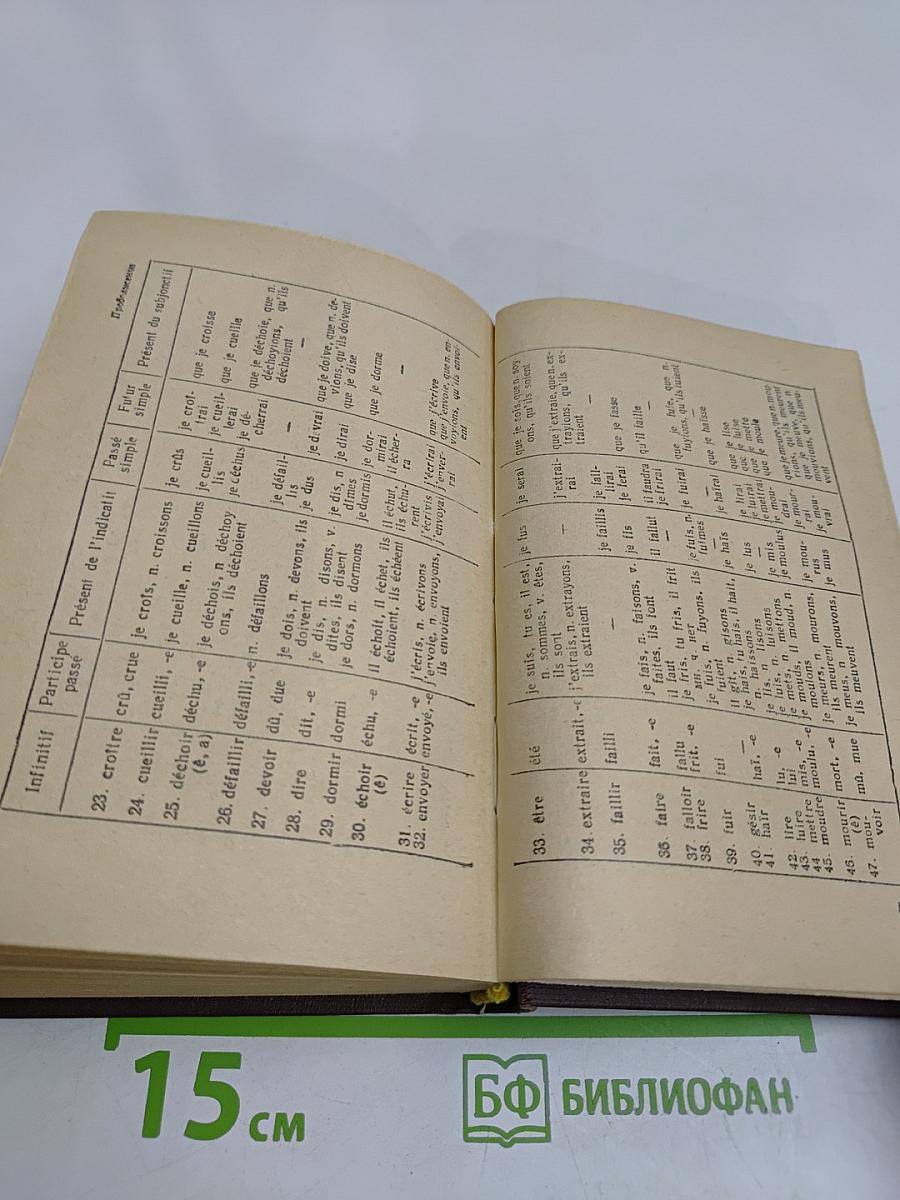 Продолжение
Infinitif Participe passé Présent de l'indicatif Passé simple Futur simple Présent du subjonctif
23. croître crû, crue je croîs, n. croissons je crûs je croîtrai que je croisse
24. cueillir cueilli, -e je cueille, n. cueillons je cueillis je cueillerai que je cueille
25. déchoir (ê, a) déchu, -e je déchois, n. déchoyons, ils déchoient je déchus je décherrai que je déchoie, que n. déchoyions, qu'ils déchoient
26. défaillir défailli, -e n. défaillons je défaillis — —
27. devoir dû, due je dois, n. devons, ils doivent je dus je devrai que je doive, que n. devions, qu'ils doivent
28. dire dit, -e je dis, n. disons, v. dites, ils disent je dis, n dîmes je dirai que je dise
29. dormir dormi je dors, n. dormons je dormis je dormirai que je dorme
30. échoir (ê) échu, -e il échoit, il échet, ils échoient, ils échéent il échut, ils échurent il écherra —
31. écrire écrit, -e j'écris, n. écrivons j'écrivis j'écrirai que j'écrive
32. envoyer envoyé, -e j'envoie, n. envoyons, ils envoient j'envoyai j'enverrai que j'envoie, que n. envoyions, qu'ils envoient
33. être été je suis, tu es, il est, n. sommes, v. êtes, ils sont je fus je serai que je sois, que n. soyons, qu'ils soient
34. extraire extrait, -e j'extrais, n. extrayons, ils extraient — j'extrairai que j'extraie, que n. extrayions, qu'ils extraient
35. faillir failli — je faillis je faillirai —
36. faire fait, -e je fais, n. faisons, v. faites, ils font je fis je ferai que je fasse
37 falloir fallu il faut il fallut il faudra qu'il faille
38. frire frit, -e je fris, tu fris, il frit — je frirai —
39. fuir fui je fuis, n. fuyons, ils fuient je fuis, n. fuîmes je fuirai que je fuie, que n. fuyions, qu'ils fuient
40. gésir — il gît, n. gisons — — —
41. haïr haï, -e je hais, tu hais, il hait, n. haïssons je haïs je haïrai que je haïsse
42. lire lu, -e je lis, n. lisons je lus je lirai que je lise
43. luire lui je luis, n. luisons — je luirai que je luise
44 mettre mis, -e je mets, n. mettons je mis je mettrai que je mette
45. moudre moulu, -e je mouds, il moud, n. moulons je moulus je moudrai que je moule
46. mourir (ê) mort, -e je meurs, n. mourons, ils meurent je mourus je mourrai que je meure, que n. mourions, qu'ils meurent
47. mouvoir mû, mue je meus, n. mouvons, ils meuvent je mus je mouvrai que je meuve, que n. mouvions, qu'ils meuvent
15 см
БФ БИБЛИОФАН